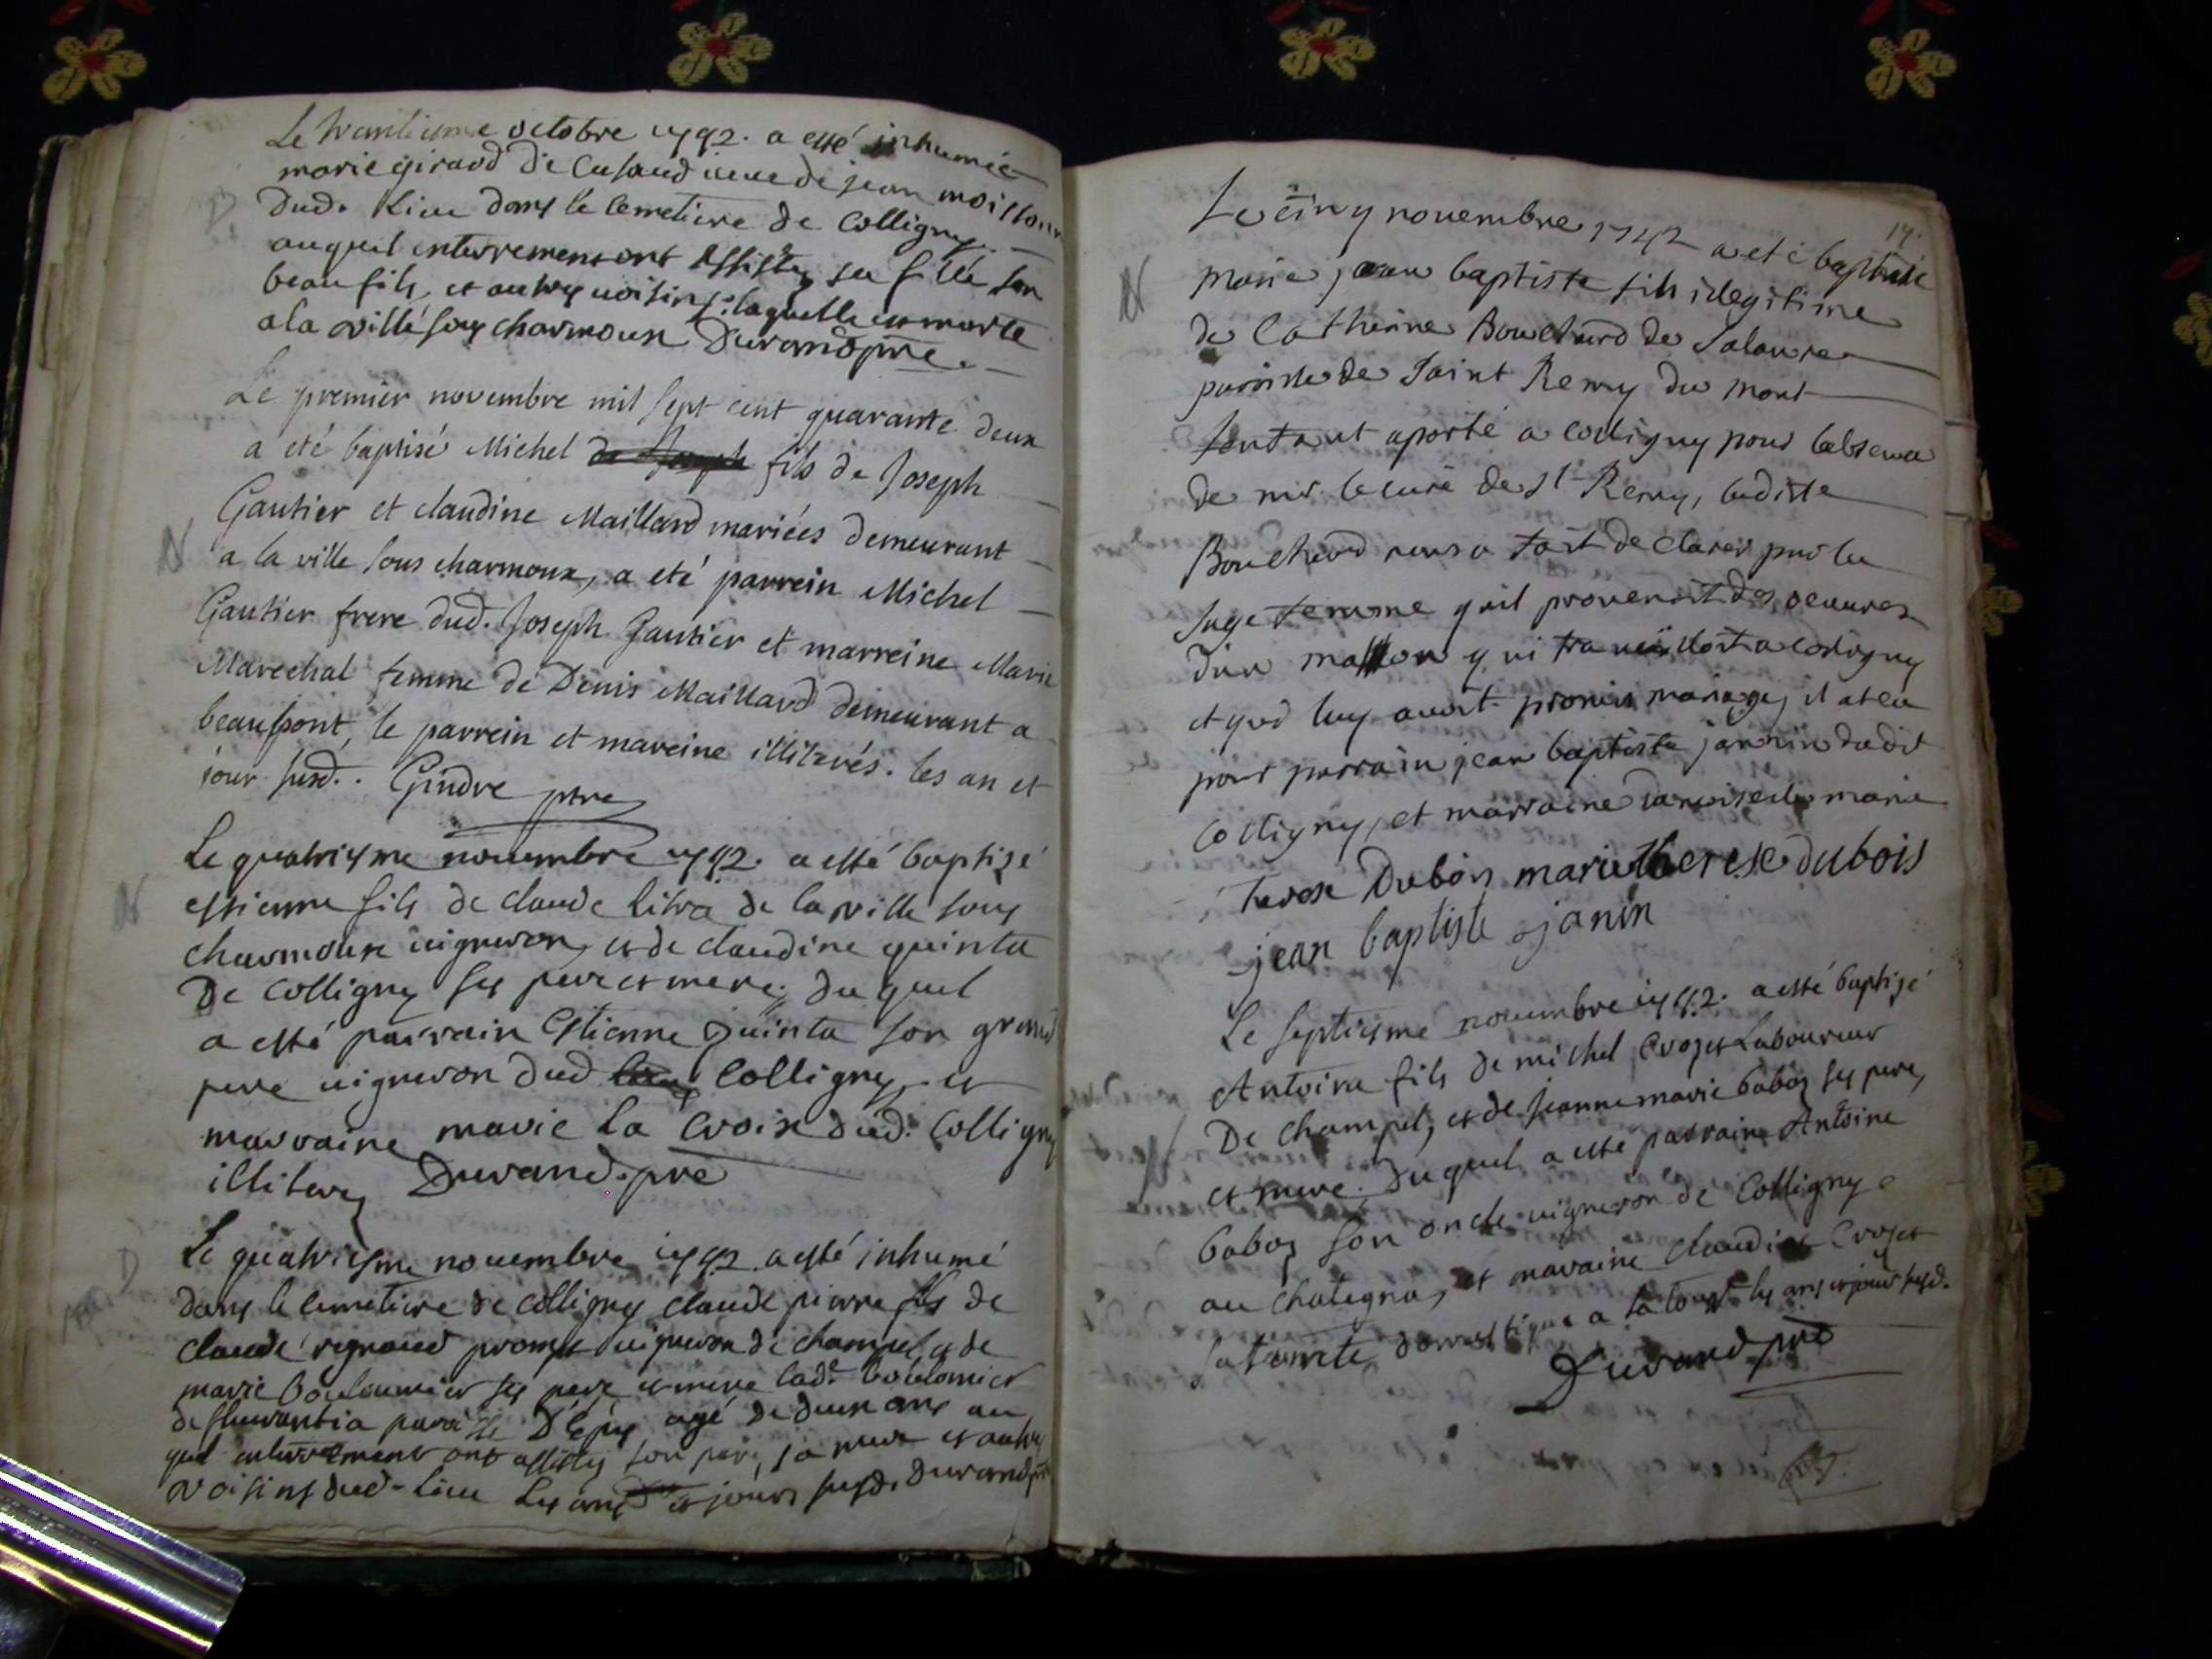 Le trentiesme octobre 1742. a esté inhumée
marie giraud de Cusaud veuve de jean moisson
dud. Lieu dans le Cemetiere de Colligny.
auquel enterrement ont assistez sa fille son
beau fils, et autres voisins. laquelle est morte
a la ville sous charmoux Durand pre.
Le premier novembre mil sept cent quarante deux
a eté baptisé Michel fils de Joseph
Gautier et claudine Maillard mariées demeurant
a la ville sous charmoux, a eté parrein Michel
Gautier frere dud. Joseph Gautier et marreine Marie
Marechal femme de Denis Maillard demeurant a
beaupont, le parrein et mareine illiterés. les an et
jour susd. Gindre ptre
Le quatriesme novembre 1742. a esté baptizé
estienne fils de claude Litra de la ville sous
charmoux vigneron, et de claudine quinta
De Colligny ses pere et mere, duquel
a esté parrain Estienne quinta son grand
pere vigneron dud Colligny, et
marraine marie la Croix dud. Colligny
illiterez Durand. pre
Le quatriesme novembre 1742 a esté inhumé
dans le cemetiere de colligny claude pierre fils de
claude regnaud vigneron de champel et de
marie Bouloumier ses pere et mere lad. boulomier
paroisse D'Epy agé de deux ans au
quel enterrement ont assistez son pere, sa mere et autres
voisins dud. lieu Les ans et jours susd. Durand pre
17.
Le cinq novembre 1742 a eté baptisé
Marie jean baptiste fils ilegitime
de Catherine Bouchard de Salavre
paroisse de Saint Remy du mont
aporté a colligny pour l'absence
de mr. le curé de St Remy, ladiste
Bouchard nous a fait declarer par la
sage femme qu'il provenoit des oeuvres
d'un masson qui travailloit a colligny
et qui luy avoit promis mariage, il a eu
pour parrain jean baptiste jannin dudit
Colligny, et marraine damoiselle marie
Therese Dubois marie therese dubois
jean baptiste janin
Le septiesme novembre 1742. a esté baptizé
Antoine fils de michel Crozet Laboureur
De champel, et de jeanne marie baboz ses pere,
et mere. Duquel a esté parrain Antoine
baboz son oncle vigneron de Colligny
au chalegna, et maraine claudine Crozet
sa tante domestique a la tour les ans et jour susd.
Durand pre